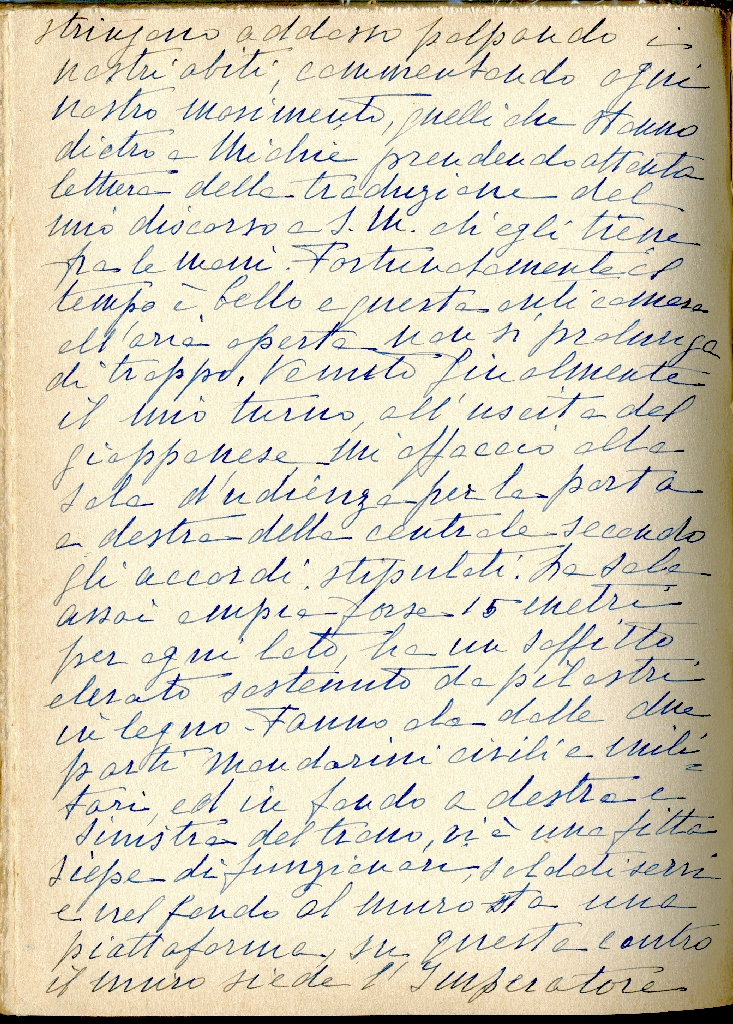 stringono addosso palpando i
nostri abiti, commentando ogni
nostro movimento, quelli che stanno
dietro a Michie prendendo attenta
lettura della traduzione del
mio discorso a S. M. ch'egli tiene
fra le mani. Fortunatamente il
tempo è bello e questa anticamera
all'aria aperta non si prolunga
di troppo. Venuto finalmente
il mio turno, all'uscita del
giapponese mi affaccio alla
sala d'udienza per la porta
a destra della centrale secondo
gli accordi stipulati. La sala
assai ampia forse 15 metri
per ogni lato, ha un soffitto
elevato sostenuto da pilastri
in legno. Fanno ala dalle due
parti mandarini civili e mili=
tari, ed in fondo a destra e
sinistra del trono, vi è una fitta
siepe di funzionari, soldati servi
e nel fondo al muro sta una
piattaforma, su questa contro
il muro siede l'Imperatore